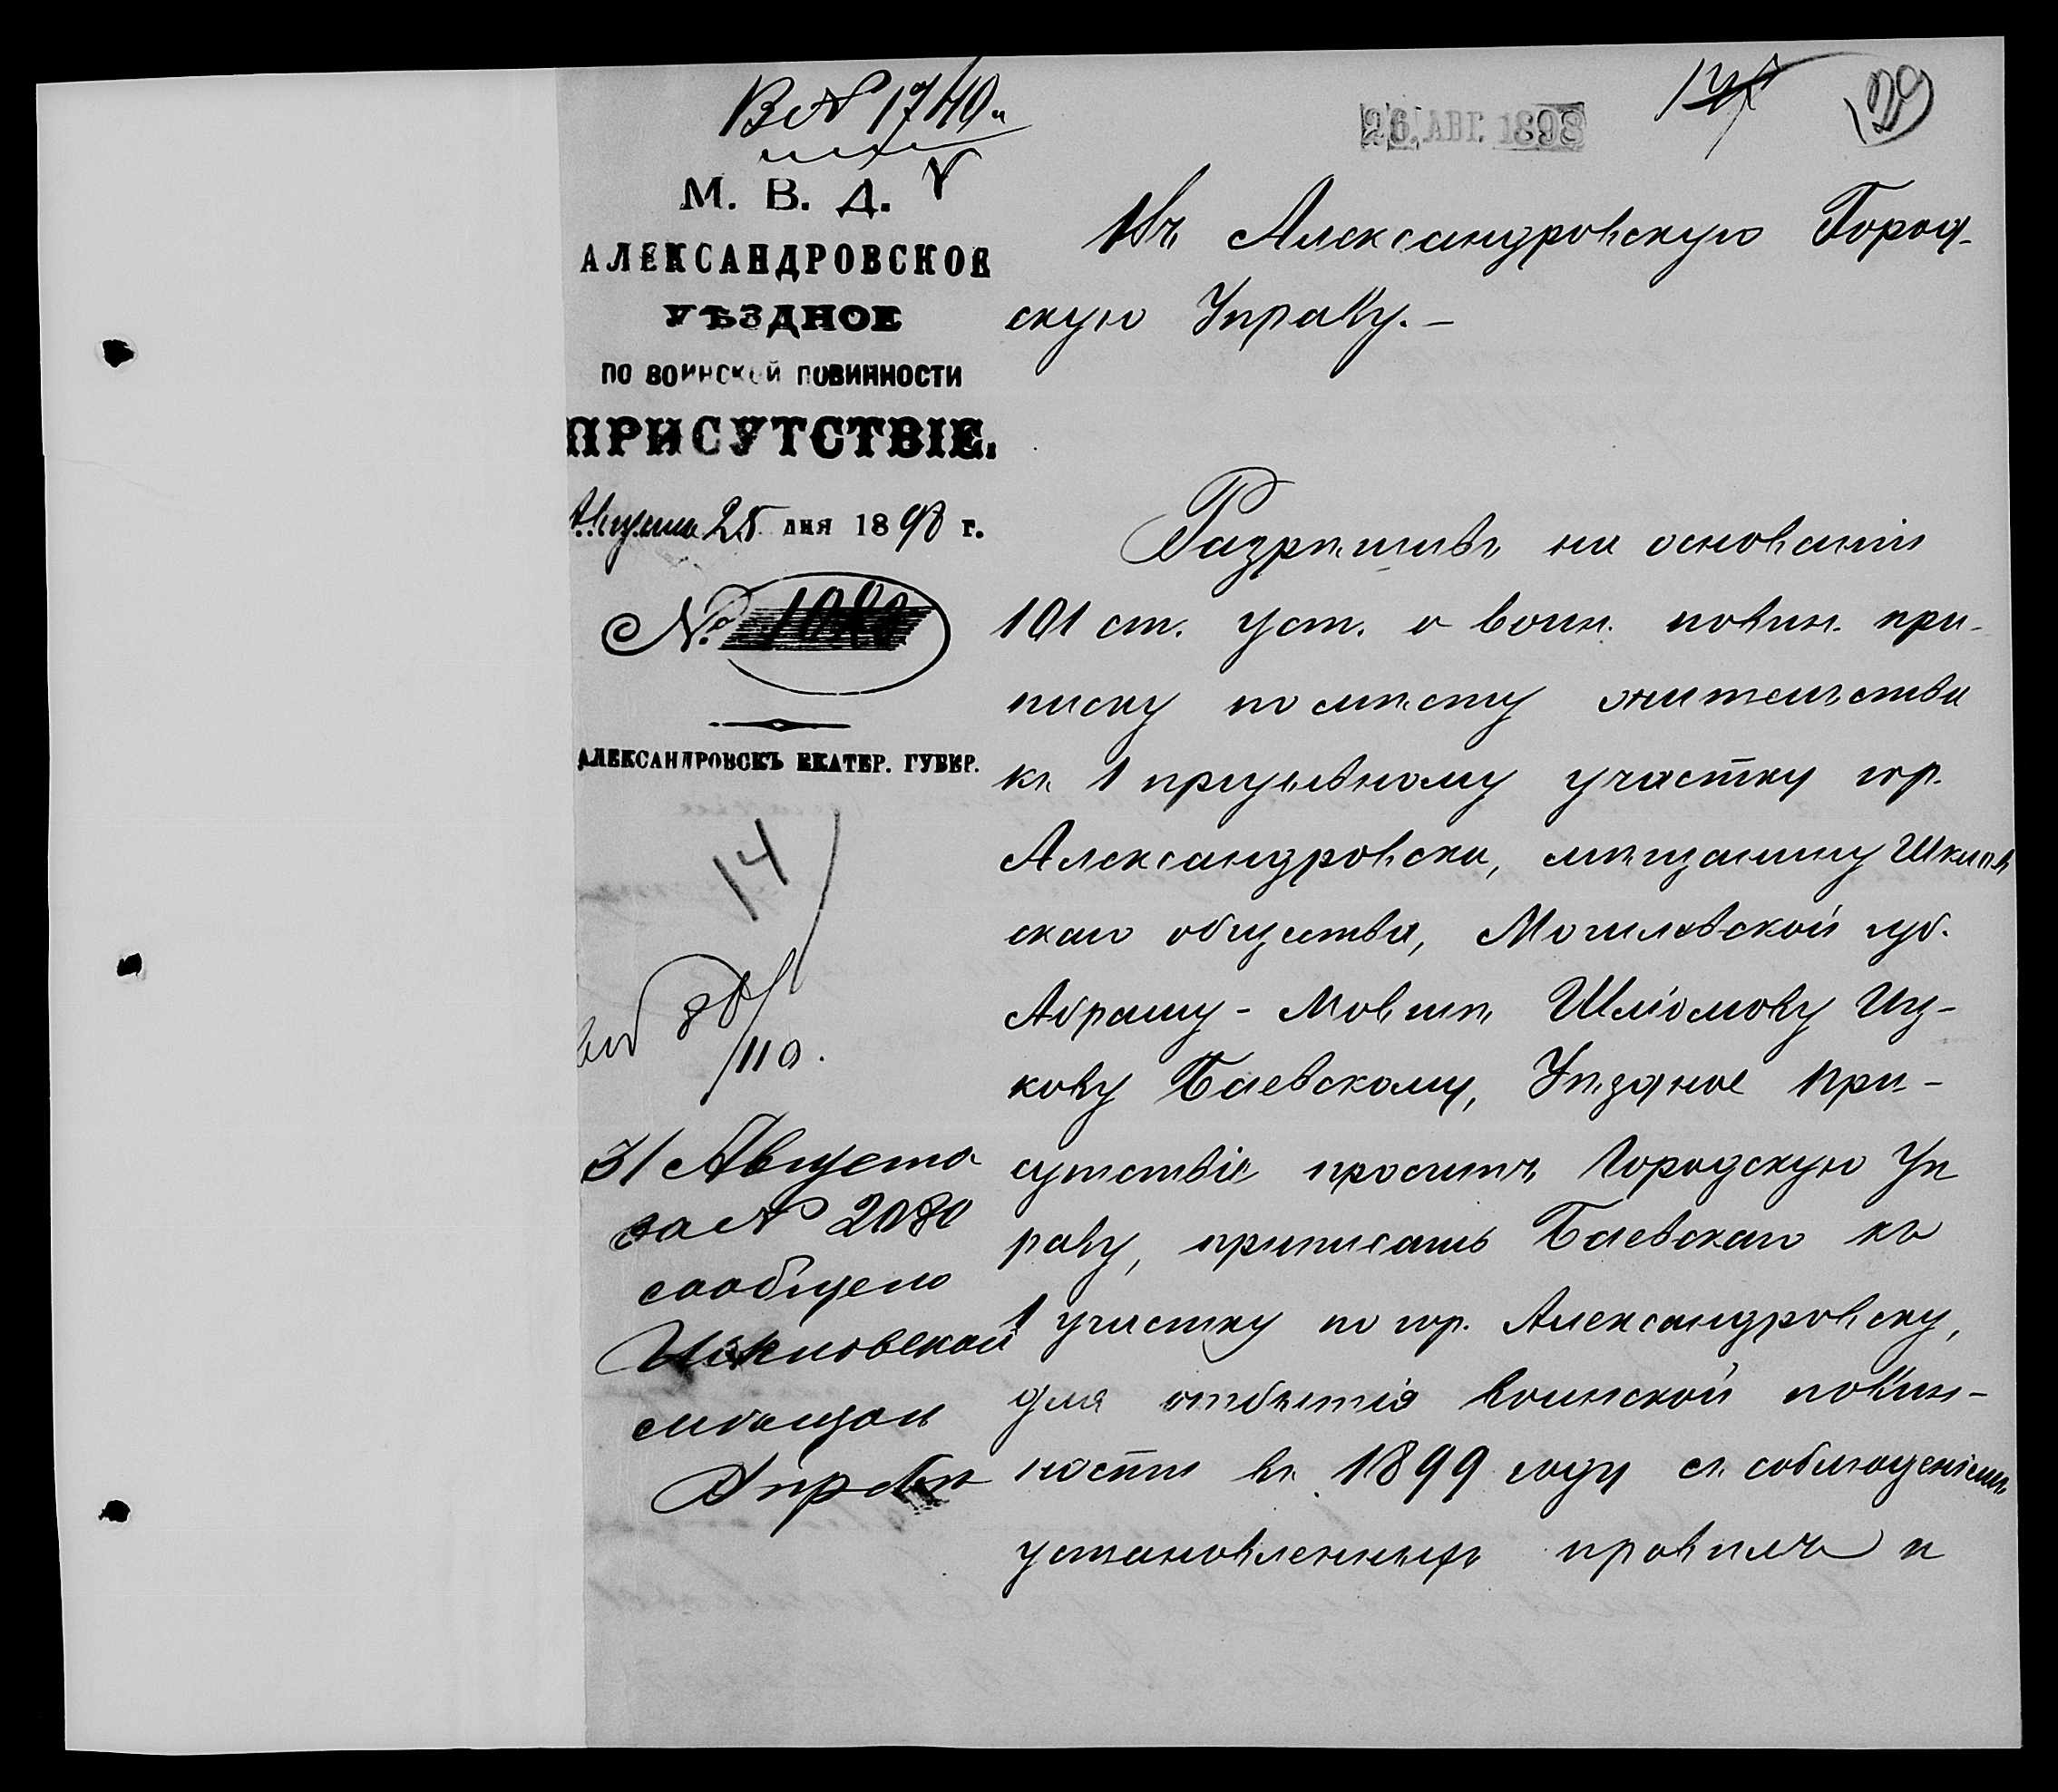 В № 1740.
26 АВГ. 1898
129
М. В. Д.
АЛЕКСАНДРОВСКОЕ
УѢЗДНОЕ
ПО ВОИНСКОЙ ПОВИННОСТИ
ПРИСУТСТВІЕ.
Августа 25 дня 1898 г.
№
АЛЕКСАНДРОВСКЪ ЕКАТЕР. ГУБЕР.
14
110.
31 Августа
за № 2080
сообщено
Шкловской
мѣщан
Управѣ
Въ Александровскую Город-
скую Управу.-
Разрѣшивъ на основаніи
101 ст. уст. о воин. повин. при-
писку по мѣсту жительства
къ 1 призывному участку гор.
Александровска, мѣщанину Шклов
скаго общества, Могилевской губ.
Абраму-Мовшѣ Шліомову Иц-
кову Баевскому, Уѣздное При-
сутствіе проситъ Городскую Уп
раву, приписать Баевскаго къ
1 участку по гор. Александровску,
для отбытія воинской повин-
ности въ 1899 году съ соблюденіемъ
установленныхъ правилъ и